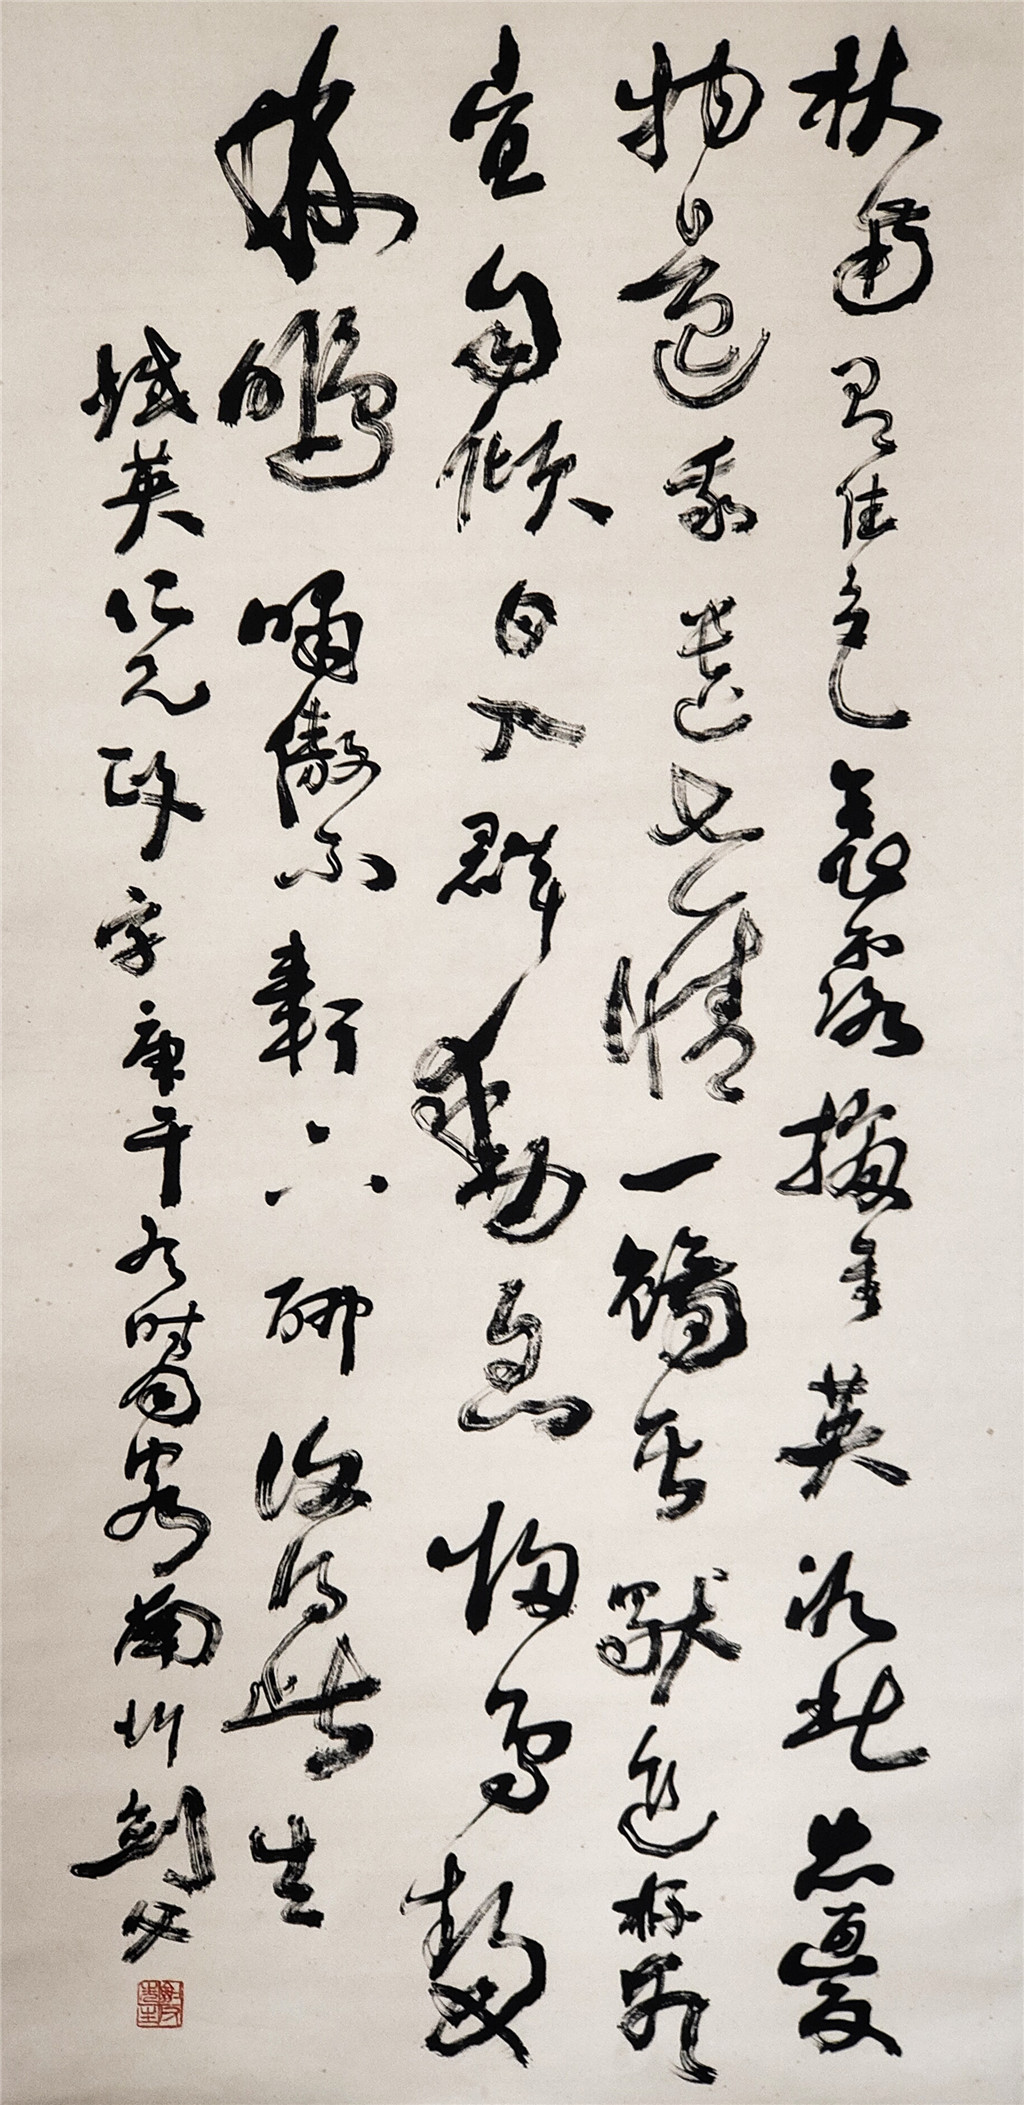 秋菊有佳色裛露掇其英泛此忘憂
物遠我遺世情一觴雖獨進杯盡
壺自傾日入群動息歸鳥趨
林鳴嘯傲東軒下聊復得此生
英仁兄政字庚午冬時同客南圻劍父